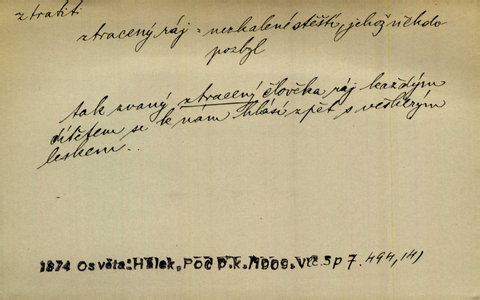 ztratiti
ztracený ráj = nezkalené štěstí, jehož někdo
pozbyl
tak zvaný ztracený člověka ráj každým
dítětem se k nám hlásí zpět s veškerým
leskem..
1874 Osvěta:Hálek, Pod p.k./1909.Vlč.Sp 7. 494, 141